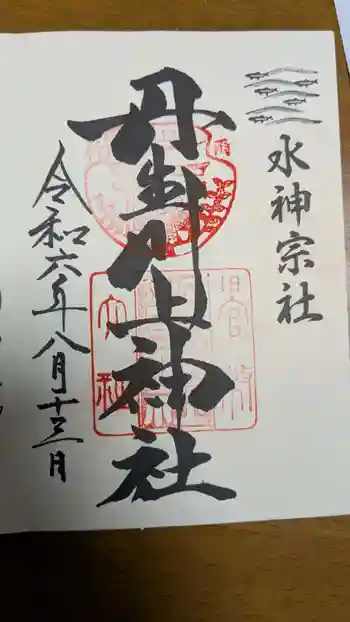 水神宗社
丹生川上神社
令和六年八月十三日